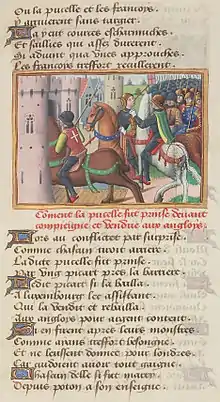 Ou la pucelle et les francoys.
Y arriverent sans targier
La peut courir escharmuches
Et saillies qui assez durerent
Si advint qua unes approuches
Les francoys tressort recullerent.
Coment la pucelle fut prinse devant
compiengne et vendue aux angloys
Lors au conflict et surprise
Comme chascun tiroit arriere
La dite pucelle fut prinse
Par ung picart pres la barriere
Ledit picart si la bailla
A luxembourg les assistant
Qui la vendit et rebailla
Aux angloys pour argent contant
Si en firent apres leurs monstres
Comme ayans tressort besongne
Et ne leussent donnee pour londres
Car cuidoient avoir tout gaigne
Depuis poton a son enseigne